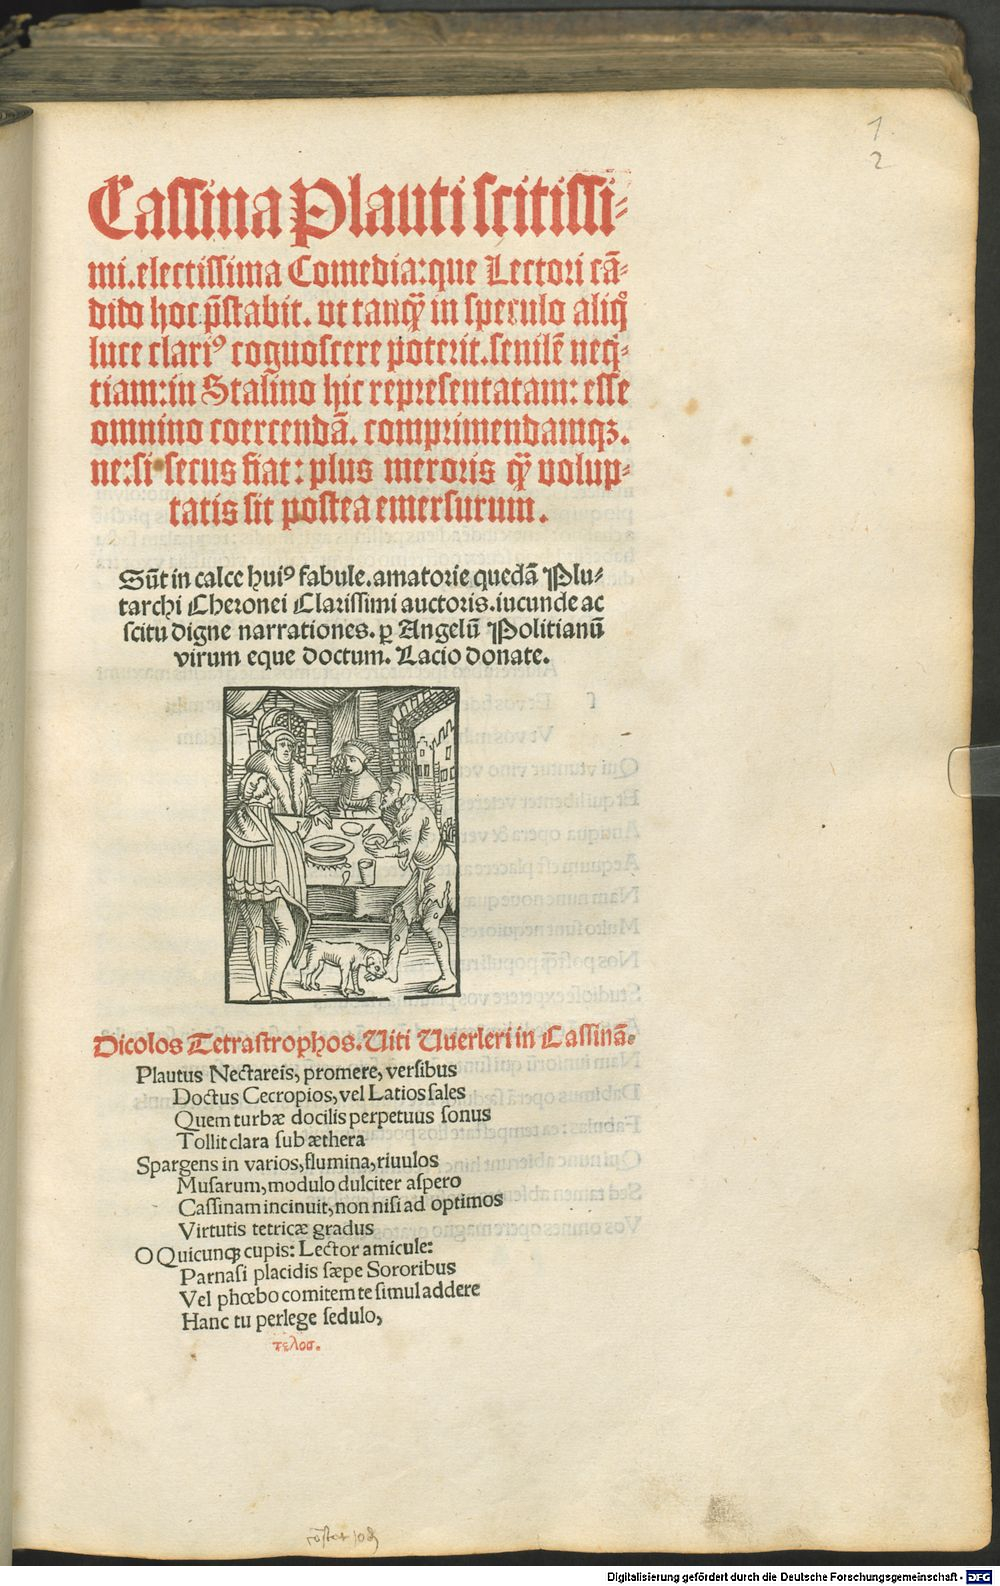 1.
2
Cassina Plauti scitissi-
mi. electissima Comedia: que Lectori cā-
dido hoc p̄stabit. vt tanqꝫ in speculo aliqͦ
luce clariꝰ cognoscere poterit. senilē neq̄-
tiam: in Stalino hic representatam: esse
omnino coercendā. comprimendamqꝫ.
ne: si secus fiat: plus meroris qꝫ volup-
tatis sit postea emersurum.
Sūt in calce huiꝰ fabule. amatorie quedā Plu-
tarchi Cheronei Clarissimi auctoris. iucunde ac
scitu digne narrationes. ꝑ Angelū Politianū
virum eque doctum. Lacio donate.
Dicolos Tetrastrophos. Uiti Uuerleri in Cassinā.
Plautus Nectareis, promere, versibus
Doctus Cecropios, vel Latios sales
Quem turbæ docilis perpetuus sonus
Tollit clara sub æthera
Spargens in varios, flumina, riuulos
Musarum, modulo dulciter aspero
Cassinam incinuit, non nisi ad optimos
Virtutis tetricæ gradus
O Quicunqꝫ cupis: Lector amicule:
Parnasi placidis sæpe Sororibus
Vel phœbo comitem te simul addere
Hanc tu perlege sedulo,
τελοσ.
Digitalisierung gefördert durch die Deutsche Forschungsgemeinschaft - DFG